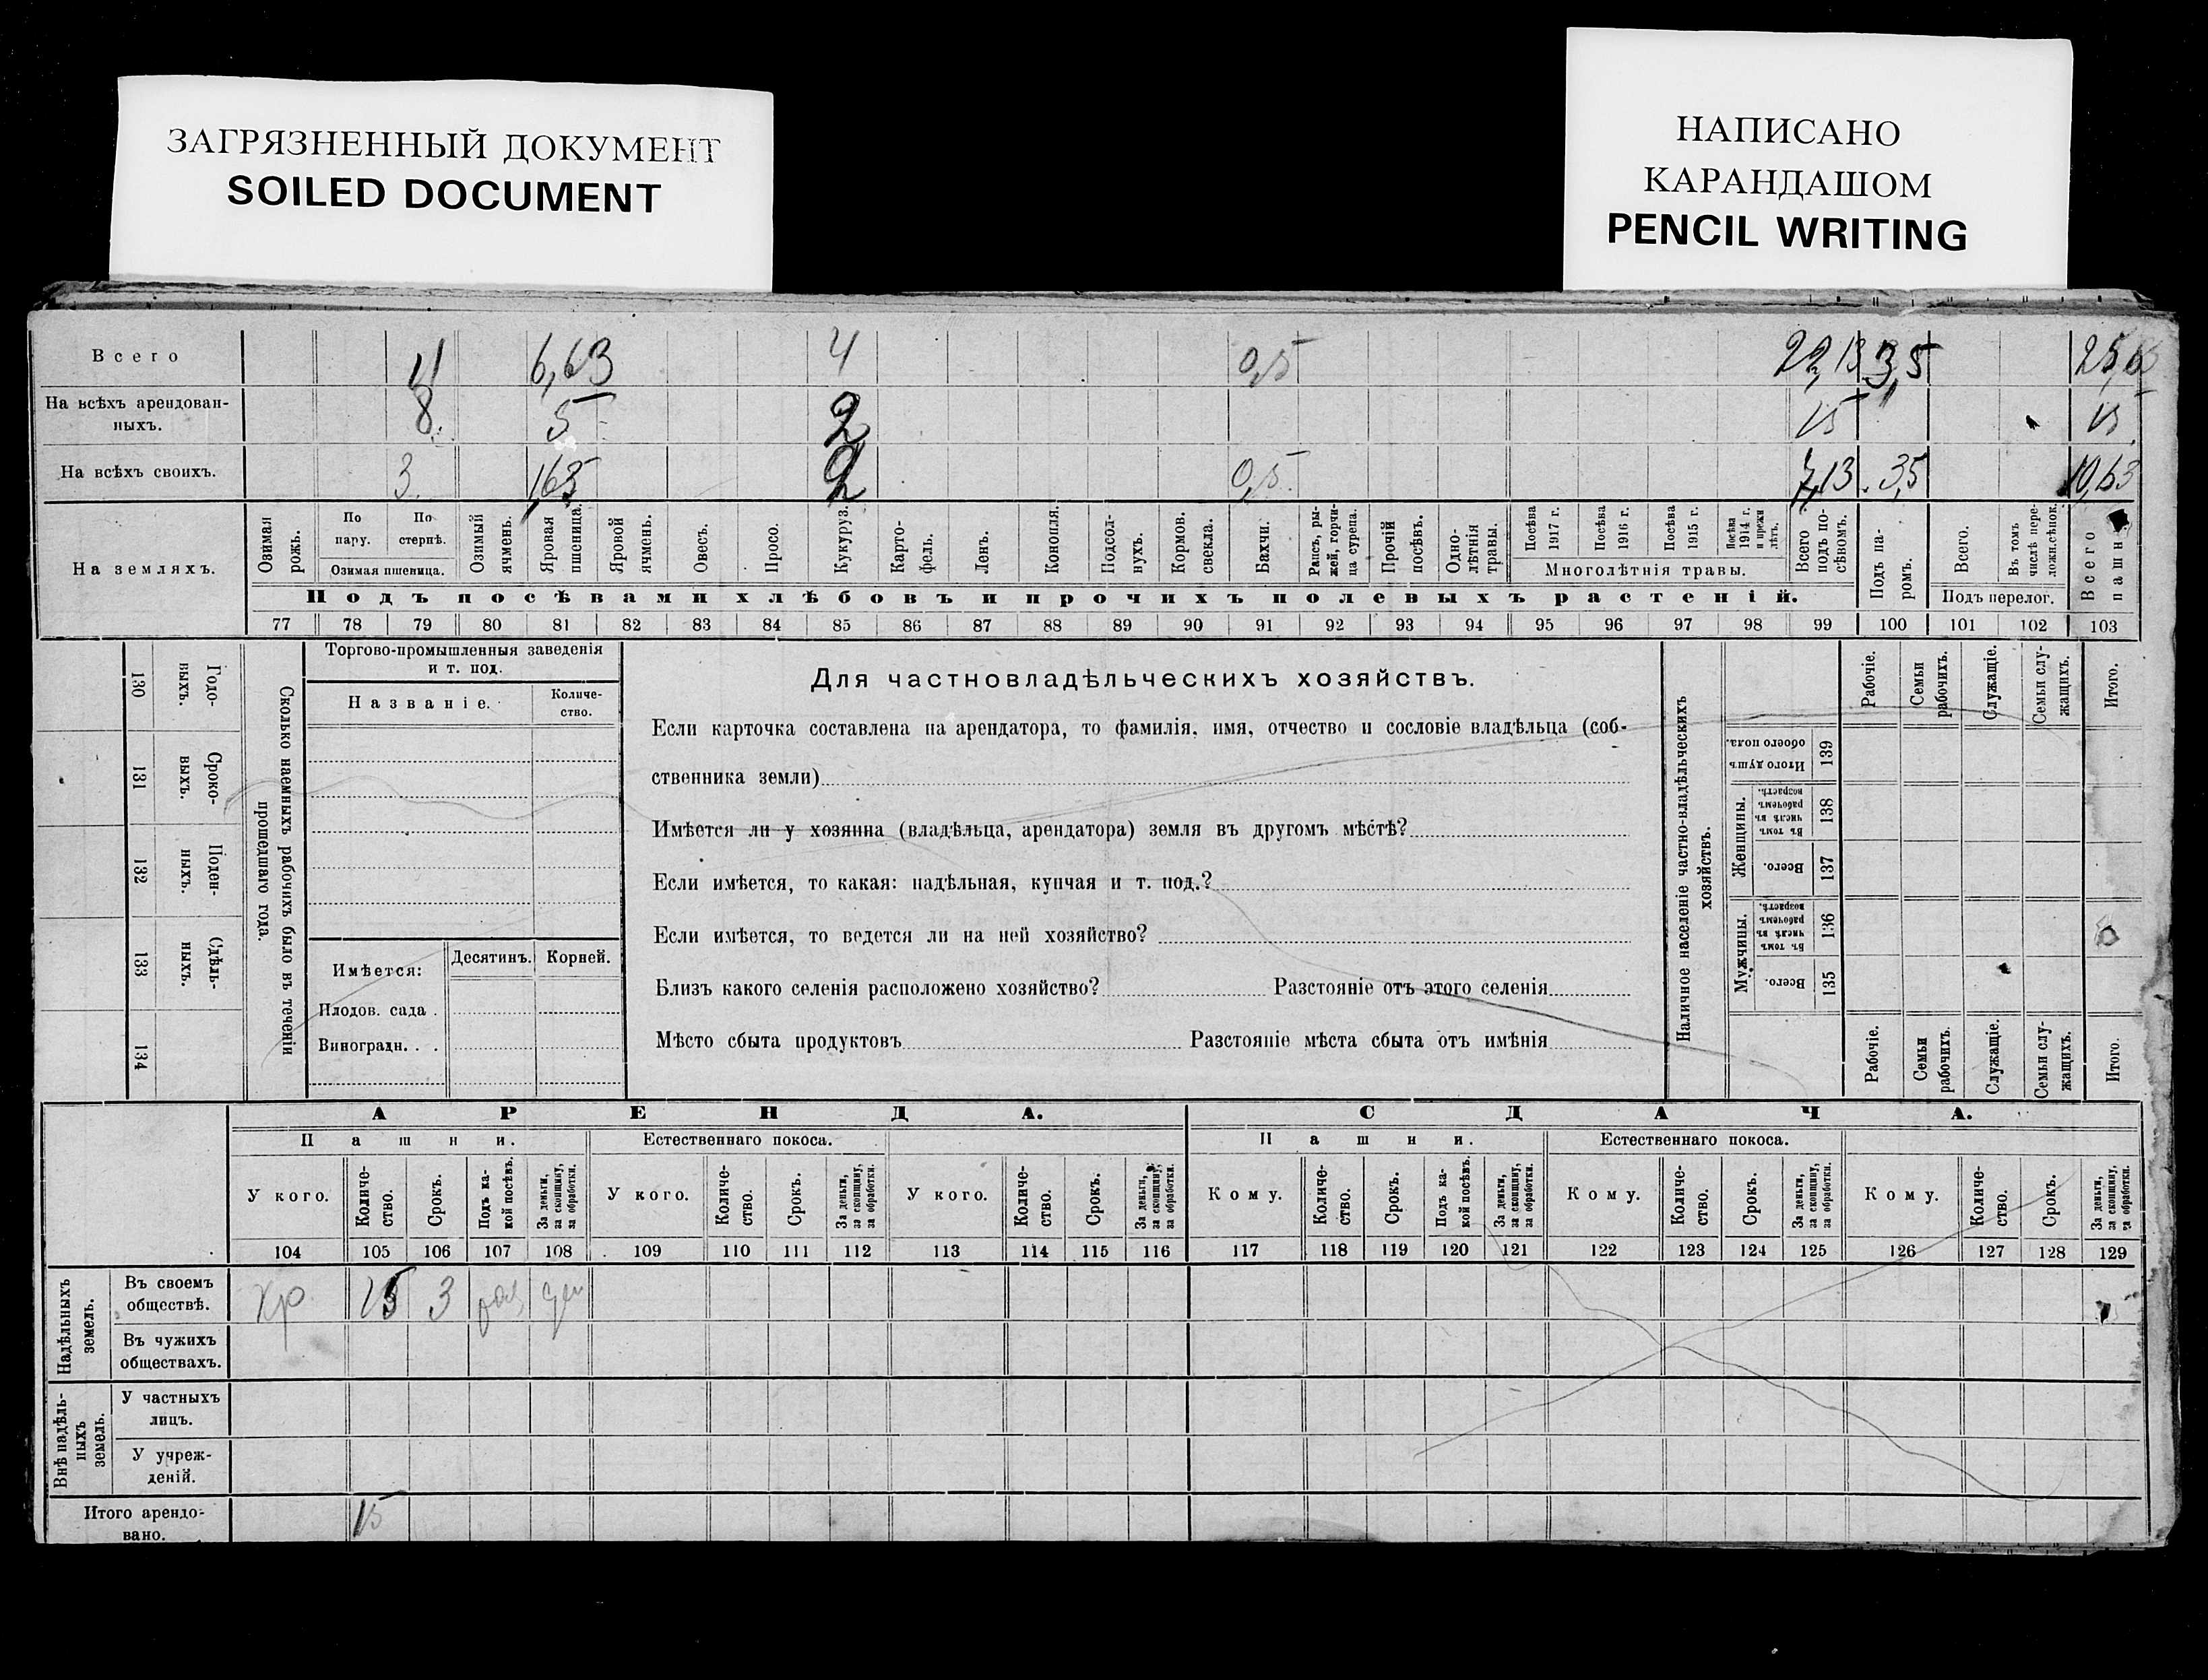 ЗАГРЯЗНЕННЫЙ ДОКУМЕНТ
SOILED DOCUMENT
НАПИСАНО
КАРАНДАШОМ
PENCIL WRITING
Всего 11 6,63 4 0,5 22,13 3,5
На всѣхъ арендован-
ныхъ. 8 5 2 15 15
На всѣхъ своихъ. 3 1,63 2 0,5 7,13 3,5 10,63
На земляхъ.
Озимая рожь.
По пару.
По стернѣ.
Озимая пшеница.
Озимый ячмень.
Яровая пшеница.
Яровой ячмень.
Овесъ.
Просо.
Кукуруз.
Карто-
фель.
Ленъ.
Конопля.
Подсол-
нухъ.
Кормов.
свекла.
Бахчи.
Рапсъ, ры-
жей, горчи-
ца сурепа.
Прочій
посѣвъ.
Одно-
лѣтнія
травы.
Посѣва
1917 г.
Посѣва
1916 г.
Посѣва
1915 г.
Посѣва
1914 г.
и прежн
лѣтъ.
Многолѣтнія травы.
Всего
подъ по-
сѣвомъ.
Подъ па-
ромъ.
Всего.
Въ томъ
числѣ пере-
ложн.сѣнок.
Подъ перелог.
Всего
пашн
Подъ посѣвами хлѣбовъ и прочихъ полевыхъ растеній.
77 78 79 80 81 82 83 84 85 86 87 88 89 90 91 92 93 94 95 96 97 98 99 100 101 102 103
130
Годо-
выхъ.
131
Сроко-
выхъ.
132
Поден-
ныхъ.
133
Сдѣль-
ныхъ.
134
Сколько наемныхъ рабочихъ было въ теченіи
прошедшаго года.
Торгово-промышленныя заведенія
и т. под.
Названіе.
Количе-
ство.
Имѣется:
Десятинъ.
Корней.
Плодов. сада .
Виноградн. . .
Для частновладѣльческихъ хозяйствъ.
Если карточка составлена на арендатора, то фамилія, имя, отчество и сословіе владѣльца (соб-
ственника земли)
Имѣется ли у хозяина (владѣльца, арендатора) земля въ другомъ мѣстѣ?
Если имѣется, то какая: надѣльная, купчая и т. под.?
Если имѣется, то ведется ли на ней хозяйство?
Близъ какого селенія расположено хозяйство? Разстояніе отъ этого селенія
Мѣсто сбыта продуктовъ Разстояніе мѣста сбыта отъ имѣнія
Наличное населеніе частно-владѣльческихъ
хозяйствъ.
Рабочіе.
Семьи
рабочихъ.
Служащіе.
Семьи слу-
жащихъ.
Итого.
Итого душъ
обоего пола.
139
Женщины.
Въ томъ
числѣ въ
рабочемъ
возрастѣ.
138
Всего.
137
Мужчины.
Въ томъ
числѣ въ
рабочемъ
возрастѣ.
136
Всего.
135
Рабочіе.
Семьи
рабочихъ.
Служащіе.
Семьи слу-
жащихъ.
Итого.
АРЕНДА.
СДАЧА.
Пашни.
Естественнаго покоса.
Пашни.
Естественнаго покоса.
У кого.
Количе-
ство.
Срокъ.
Подъ ка-
кой посѣвъ.
За деньги,
за скопщину,
за обработки.
У кого.
Количе-
ство.
Срокъ.
За деньги,
за скопщину,
за обработки.
У кого.
Количе-
ство.
Срокъ.
За деньги,
за скопщину,
за обработки.
Кому.
Количе-
ство.
Срокъ.
Подъ ка-
кой посѣвъ.
За деньги,
за скопщину,
за обработки.
Кому.
Количе-
ство.
Срокъ.
За деньги,
за скопщину,
за обработки.
Кому.
Количе-
ство.
Срокъ.
За деньги,
за скопщину,
за обработки.
104 105 106 107 108 109 110 111 112 113 114 115 116 117 118 119 120 121 122 123 124 125 126 127 128 129
Надѣльныхъ
земель.
Въ своемъ
обществѣ. 15 3
Въ чужихъ
обществахъ.
Внѣ надѣль-
ныхъ
земель.
У частныхъ
лицъ.
У учреж-
деній.
Итого арендо-
вано. 15